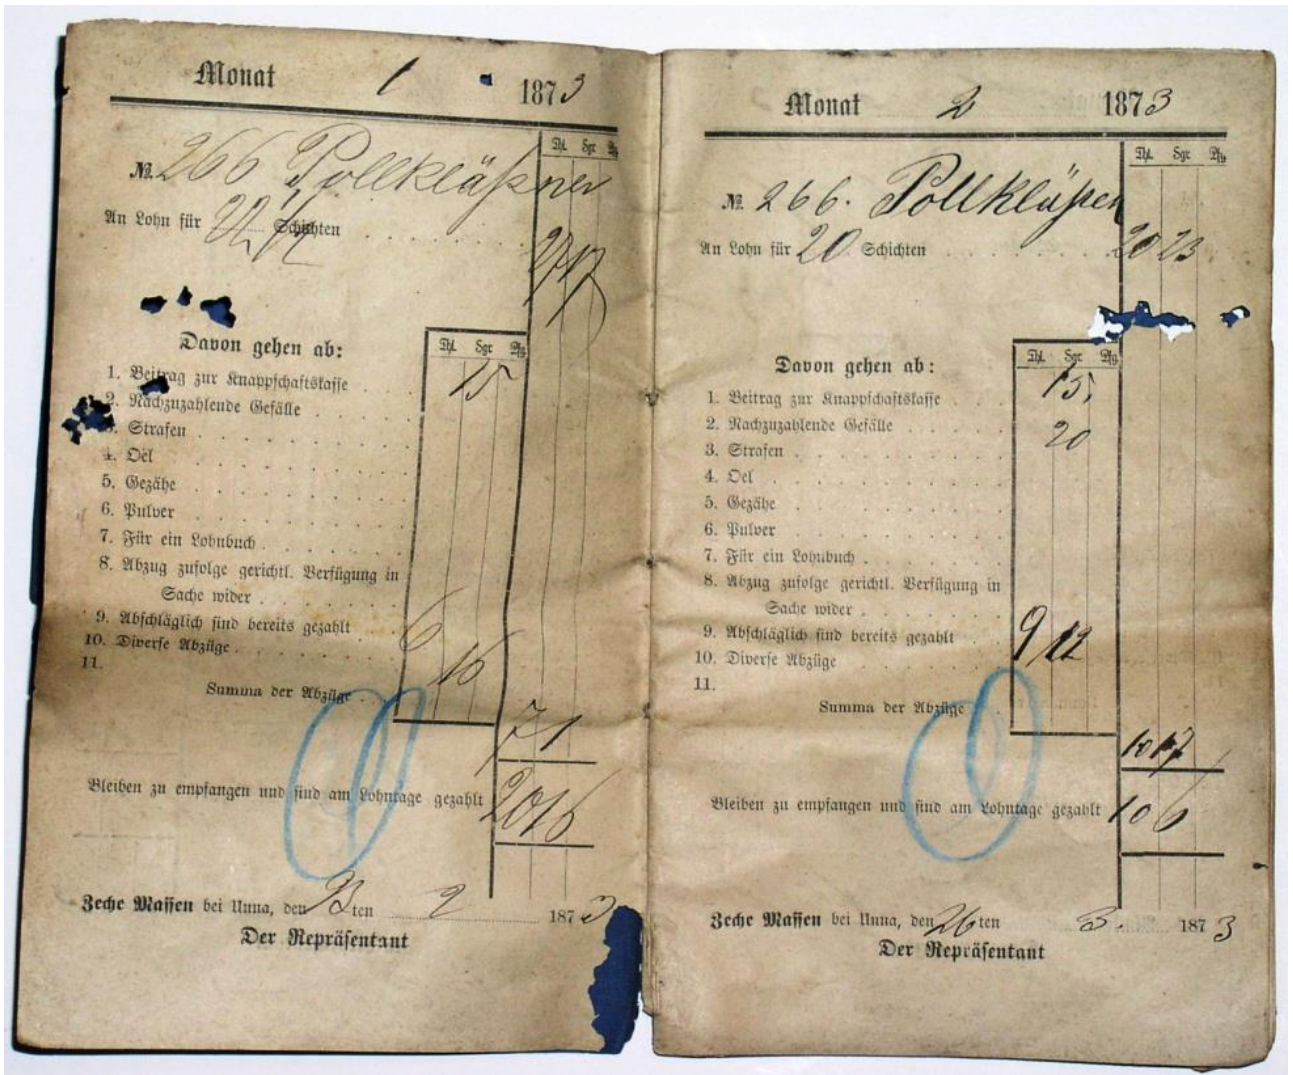 Monat 1 1873
Thl. Sgr Pfg
№ 266 Pollkläßner
An Lohn für 22 Schichten
27 17
Davon gehen ab:
Thl. Sgr Pfg
1. Beitrag zur Knappschaftskasse 15
2. Nachzuzahlende Gefälle
3. Strafen
4. Oel
5. Gezähe
6. Pulver
7. Für ein Lohnbuch
8. Abzug zufolge gerichtl. Verfügung in
Sache wider
9. Abschläglich sind bereits gezahlt 6
10. Diverse Abzüge 16
11.
Summa der Abzüge
7 1
Bleiben zu empfangen und sind am Lohntage gezahlt 20 16
Zeche Massen bei Unna, den ten 2 1873
Der Repräsentant
Monat 2 1873
Thl. Sgr Pfg
№ 266. Pollkläßner
An Lohn für 20 Schichten 20 23
Davon gehen ab:
Thl. Sgr Pfg
1. Beitrag zur Knappschaftskasse 15
2. Nachzuzahlende Gefälle 20
3. Strafen
4. Oel
5. Gezähe
6. Pulver
7. Für ein Lohnbuch
8. Abzug zufolge gerichtl. Verfügung in
Sache wider
9. Abschläglich sind bereits gezahlt 9 12
10. Diverse Abzüge
11.
Summa der Abzüge
10 17
Bleiben zu empfangen und sind am Lohntage gezahlt 10 6
Zeche Massen bei Unna, den 26 ten 3. 1873
Der Repräsentant